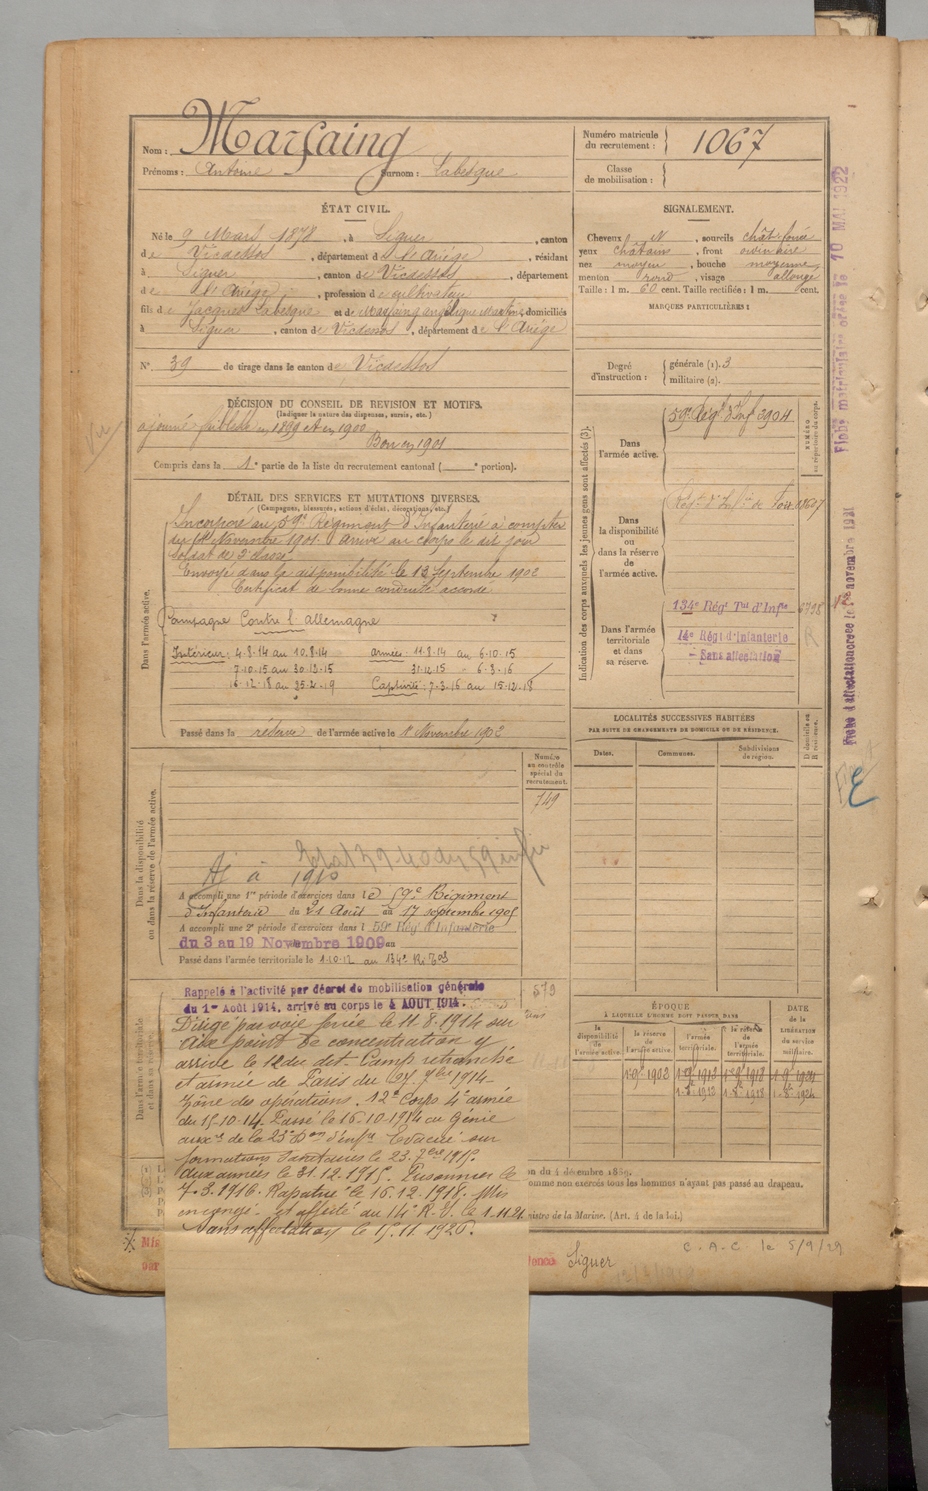 Nom : Marfaing
Prénoms : Antoine Surnom : Labesque
Numéro matricule du recrutement : 1067
Classe de mobilisation :
ÉTAT CIVIL.
Né le 9 Mars 1878, à Siguer, canton
de Vicdessos, département de l'Ariège, résidant
à Siguer, canton de Vicdessos, département
de l'Ariège, profession de cultivateur
fils de Jacques Labesque et de Marfaing Angélique Martine, domiciliés
à Siguer, canton de Vicdessos, département de l'Ariège
N° 39 de tirage dans le canton de Vicdessos
SIGNALEMENT.
Cheveux N, sourcils chât. foncé
yeux châtain, front ordinaire
nez moyen, bouche moyenne
menton rond, visage allongé
Taille : 1 m. 60 cent. Taille rectifiée : 1 m. cent.
MARQUES PARTICULIÈRES :
Degré d'instruction : générale (1). 3
militaire (2).
DÉCISION DU CONSEIL DE REVISION ET MOTIFS.
(Indiquer la nature des dispenses, sursis, etc.)
ajourné faiblesse en 1899 et en 1900
Bon en 1901
Compris dans la 1e partie de la liste du recrutement cantonal ( e portion).
DÉTAIL DES SERVICES ET MUTATIONS DIVERSES.
(Campagnes, blessures, actions d'éclat, décorations, etc.)
Dans l'armée active.
Incorporé au 59e Régiment d'Infanterie à compter
du Novembre 1901. Arrivé au corps le dit jour
soldat de 2 classe
Envoyé dans la disponibilité le 13 Septembre 1902
Certificat de bonne conduite accordé
Campagne Contre l'allemagne
Intérieur : 4.8.14 au 10.8.14 armée : 11.8.14 au 6.10.15
7.10.15 au 30.12.15 31.12.15 - 6.3.16
16.12.18 au 2.19 Captivité : 7.3.16 au 15.12.18
Passé dans la réserve de l'armée active le 1 Novembre 1902
Indication des corps auxquels les jeunes gens sont affectés (3).
NUMÉRO au répertoire du corps.
Dans l'armée active.
59e Régt d'Inf 3904
Dans la disponibilité ou dans la réserve de l'armée active.
Régt d'Infie de
Dans l'armée territoriale et dans sa réserve.
134e Régt Tal d'Infie
14e Régt d'Infanterie
Sans affectation
LOCALITÉS SUCCESSIVES HABITÉES
PAR SUITE DE CHANGEMENTS DE DOMICILE OU DE RÉSIDENCE.
Dates. Communes. Subdivisions de région. D domicile ou R résidence.
Dans la disponibilité ou dans la réserve de l'armée active.
Numéro au contrôle spécial du recrutement.
749
Aj à 1910
A accompli une 1re période d'exercices dans le 59e Régiment
d'Infanterie du 21 Août au 17 septembre 1905
A accompli une 2e période d'exercices dans l 59e Rég d'Infanterie
du 3 au 19 Novembre 1909 au
Passé dans l'armée territoriale le 1.10.12 au 134e
Dans l'armée territoriale et dans sa réserve.
Rappelé à l'activité par décret de mobilisation générale
du 1er Août 1914, arrivé au corps le 4 AOUT 1914.
573
Dirigé par voie ferrée le 11.8.1914 sur
un point de concentration y
arrivé le 12 du dit. Camp retranché
et armée de Paris du 7bre 1914
Zône des opérations. 12e Corps 4e armée
du 15.10.14. Passé le 16.10.1914 au Génie
auxre de la 23e Don d'infie Evacué sur
formations sanitaires le 23.7bre 1915
aux armées le 31.12.1915. Prisonnier le
7.3.1916. Rapatrié le 16.12.1918. Mis
en congé. et affecté au 14e R.I. le 1.11.21
Sans affectation le 15.11.1926.
ÉPOQUE
À LAQUELLE L'HOMME DOIT PASSER DANS
la disponibilité de l'armée active. la réserve de l'armée active. l'armée territoriale. la réserve de l'armée territoriale.
DATE de la LIBÉRATION du service militaire.
1-9bre 1902
on du 4 décembre 1889.
comme non exercés tous les hommes n'ayant pas passé au drapeau.
nistre de la Marine. (Art. 4 de la loi.)
Siguer
C.A.C. le 5/9/29
Fiche matriculaire créée le 10 MAI 1922
Fiche d'affectation créée le novembre 1921